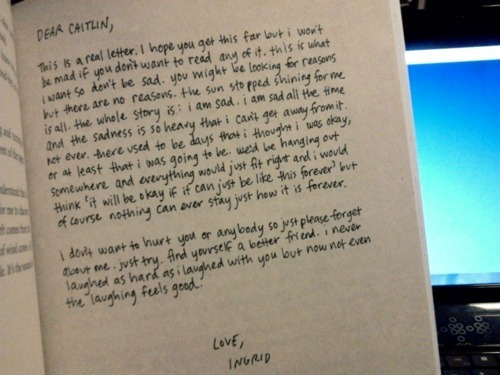 DEAR CAITLIN,
This is a real letter. I hope you get this far but i won't
be mad if you don't want to read any of it. this is what
i want so don't be sad. you might be looking for reasons
but there are no reasons. the sun stopped shining for me
is all. the whole story is: i am sad. i am sad all the time
and the sadness is so heavy that i can't get away from it.
not ever. there used to be days that i thought i was okay,
or at least that i was going to be. we'd be hanging out
somewhere and everything would just fit right and i would
think 'it will be okay if it can just be like this forever' but
of course nothing can ever stay just how it is forever.
I don't want to hurt you or anybody so just please forget
about me. just try. find yourself a better friend. i never
laughed as hard as i laughed with you but now not even
the laughing feels good.
LOVE,
INGRID